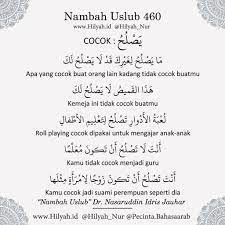 Nambah Uslub 460
www.Hilyah.id @Hilyah_Nur
COCOK : يَصْلُحُ
مَا يَصْلُحُ لِغَيْرِكَ قَدْ لَا يَصْلُحُ لَكَ
Apa yang cocok buat orang lain kadang tidak cocok buatmu
هَذَا الْقَمِيْصُ لَا يَصْلُحُ لَكَ
Kemeja ini tidak cocok buatmu
لُعْبَةُ الْأَدْوَارِ تَصْلُحُ لِتَعْلِيْمِ الْأَطْفَالِ
Roll playing cocok dipakai untuk mengajar anak-anak
أَنْتَ لَا تَصْلُحُ أَنْ تَكُوْنَ مُعَلِّمًا
Kamu tidak cocok menjadi guru
أَنْتَ تَصْلُحُ أَنْ تَكُوْنَ زَوْجًا لِامْرَأَةٍ مِثْلِهَا
Kamu cocok jadi suami perempuan seperti dia
"Nambah Uslub" Dr. Nasaruddin Idris Jauhar
www.Hilyah.id @Hilyah_Nur @Pecinta.Bahasaarab